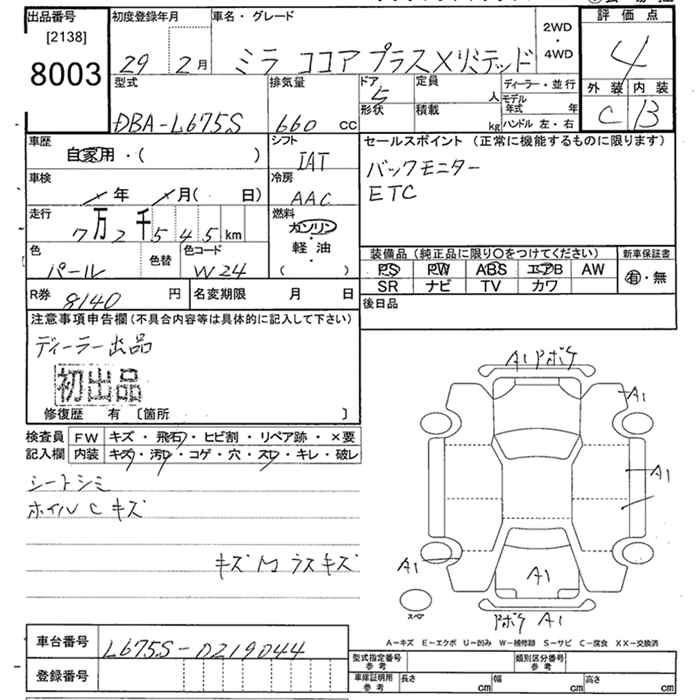 出品番号
[2138]
8003
初度登録年月
29 2月
車名・グレード
ミラ ココア プラスXリミテッド
2WD
・
4WD
評価点
4
外装 内装
C B
型式
DBA-L675S
排気量
660 CC
ドア
5
形状
定員
人
積載
kg
ディーラー・並行
モデル年式 年
ハンドル 左・右
車歴
自家用・( )
シフト
IAT
セールスポイント (正常に機能するものに限ります)
バックモニター
ETC
車検
年 月( 日)
冷房
AAC
走行
7万2千545km
燃料
ガソリン
軽油
( ・ )
色
パール
色替
色コード
W24
装備品 (純正品に限り○をつけてください)
PS PW ABS エアB AW
SR ナビ TV カワ
新車保証書
有・無
R券 8140 円
名変期限 月 日
後日品
注意事項申告欄 (不具合内容等は具体的に記入して下さい)
ディーラー出品
初出品
修復歴 有 〔箇所 〕
検査員
記入欄
FW キズ・飛石・ヒビ割・リペア跡・×要
内装 キズ・汚・コゲ・穴・スレ・キレ・破レ
シートシミ
ホイルCキズ
キズ M ラスキズ
A1 Pボケ
A1
A1
A1
A1
Pボケ A1
スペア
A−キズ E−エクボ U−凹み W−補修跡 S−サビ C−腐食 XX−交換済
車台番号 L675S-0219044
登録番号
型式指定番号
参考
類別区分番号
参考
車庫証明用
参考
長さ cm 幅 cm 高さ cm